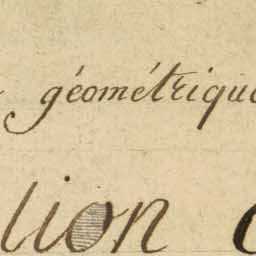 géométrique
lion